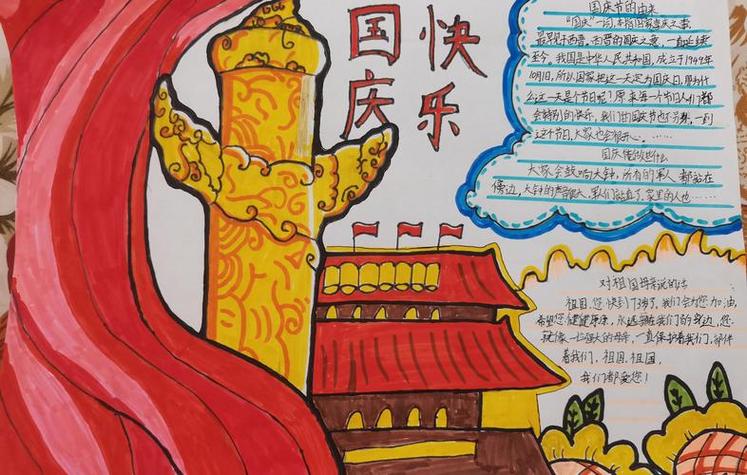 国庆
快乐
国庆节的由来
"国庆"一词,本指国家喜庆之事,
最早见于西晋,西晋的国庆之事,一直延续
至今,我国是中华人民共和国,成立于1949年
10月1日,所以国家把这一天定为国庆日,那为什
么这一天是个节日呢?原来每一个节日人们都
会特别的快乐,我们的国庆节也不例,一到
这个节日,大家也会很开心。……
国庆能做些什么
大家会敲响大钟,所有的军人都站在
傍边,大钟的声音很大,军人们站直了,家里的人也……
对祖国母亲说的话
祖国,您快到73岁了,我们会为您加油,
希望您健健康康,永远在我们的身边,您
就像一位伟大的母亲,一直保护着我们,陪伴
着我们,祖国,祖国,
我们都爱您!